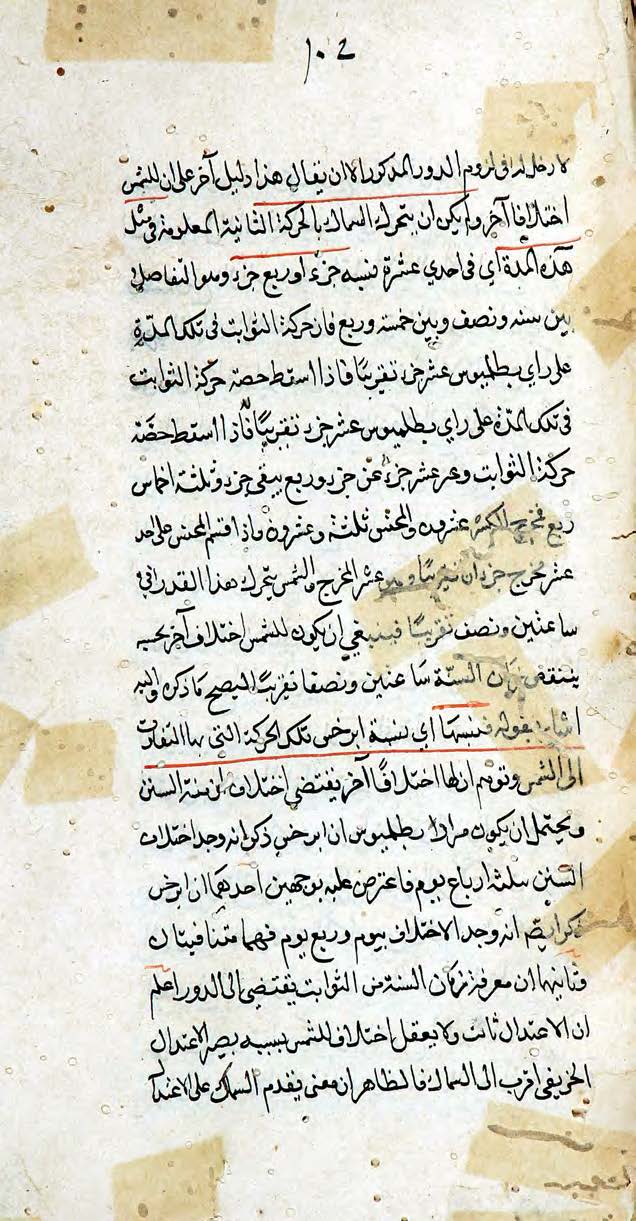 ١٠٢
لا دخل له فى لزوم الدور المذكور الا ان يقال هذا دليل آخر على ان للشمس
اختلافا آخر ولم يكن ان يتحرك السماك بالحركة الثانية المعلومة فى مثل
هذه المدة اى فى احدى عشرة سنة جزء او ربع جزء وهو التفاضل
بين ستة ونصف وبين خمسة وربع فان حركة الثوابت فى تلك المدة
على راى بطلميوس عشر جزء تقريبًا فاذا اسقط حصة حركة الثوابت
فى تلك المدة على راى بطلميوس عشر جزء تقريبًا فاذا اسقط حصّة
حركة الثوابت وعر عشر جزء عن جزء وربع يبقى جزء وثلثة اخماس
ربع فمخرج الكسر عشرون والمجنس ثلثة وعشرون فاذا قسم المجنس على احد
عشر مخرج جزءان تقريبًا عشر المخرج والشمس يتحرك هذا القدر فى
ساعتين ونصف تقريبًا فينبغى ان يكون للشمس اختلاف آخر بحسبه
ينتقض زمان السنة ساعتين ونصفا تقريبًا ليصح ما ذكره واليه
اشار بقوله فنسبها اى نسبة ابرخس تلك الحركة التى بها التفاوت
الى الشمس وتوهم انها اختلافًا آخر يقتضى اختلاف ازمنة السنن
ويحتمل ان يكون مراد بطلميوس ان ابرخس ذكر انه وجد اختلاف
السنن بثلثة ارباع يوم فاعترض عليه بوجهين احدهما ان ابرخس
ذكر ايضا انه وجد الاختلاف بيوم وربع يوم فهما متنافيتان
وثانيهما ان معرفة زمان السنة من الثوابت يقتضى الى الدور اعلم
ان الاعتدال ثابت ولا يعقل اختلاف للشمس بسببه يصير الاعتدال
الخريفى اقرب الى السماك فالظاهر ان معنى يقدم السماك على الاعتدال